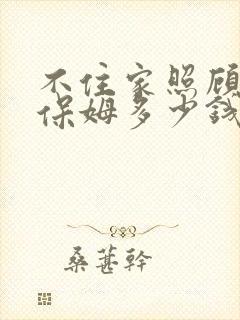 不住家照顾
保姆多少钱
桑葚幹